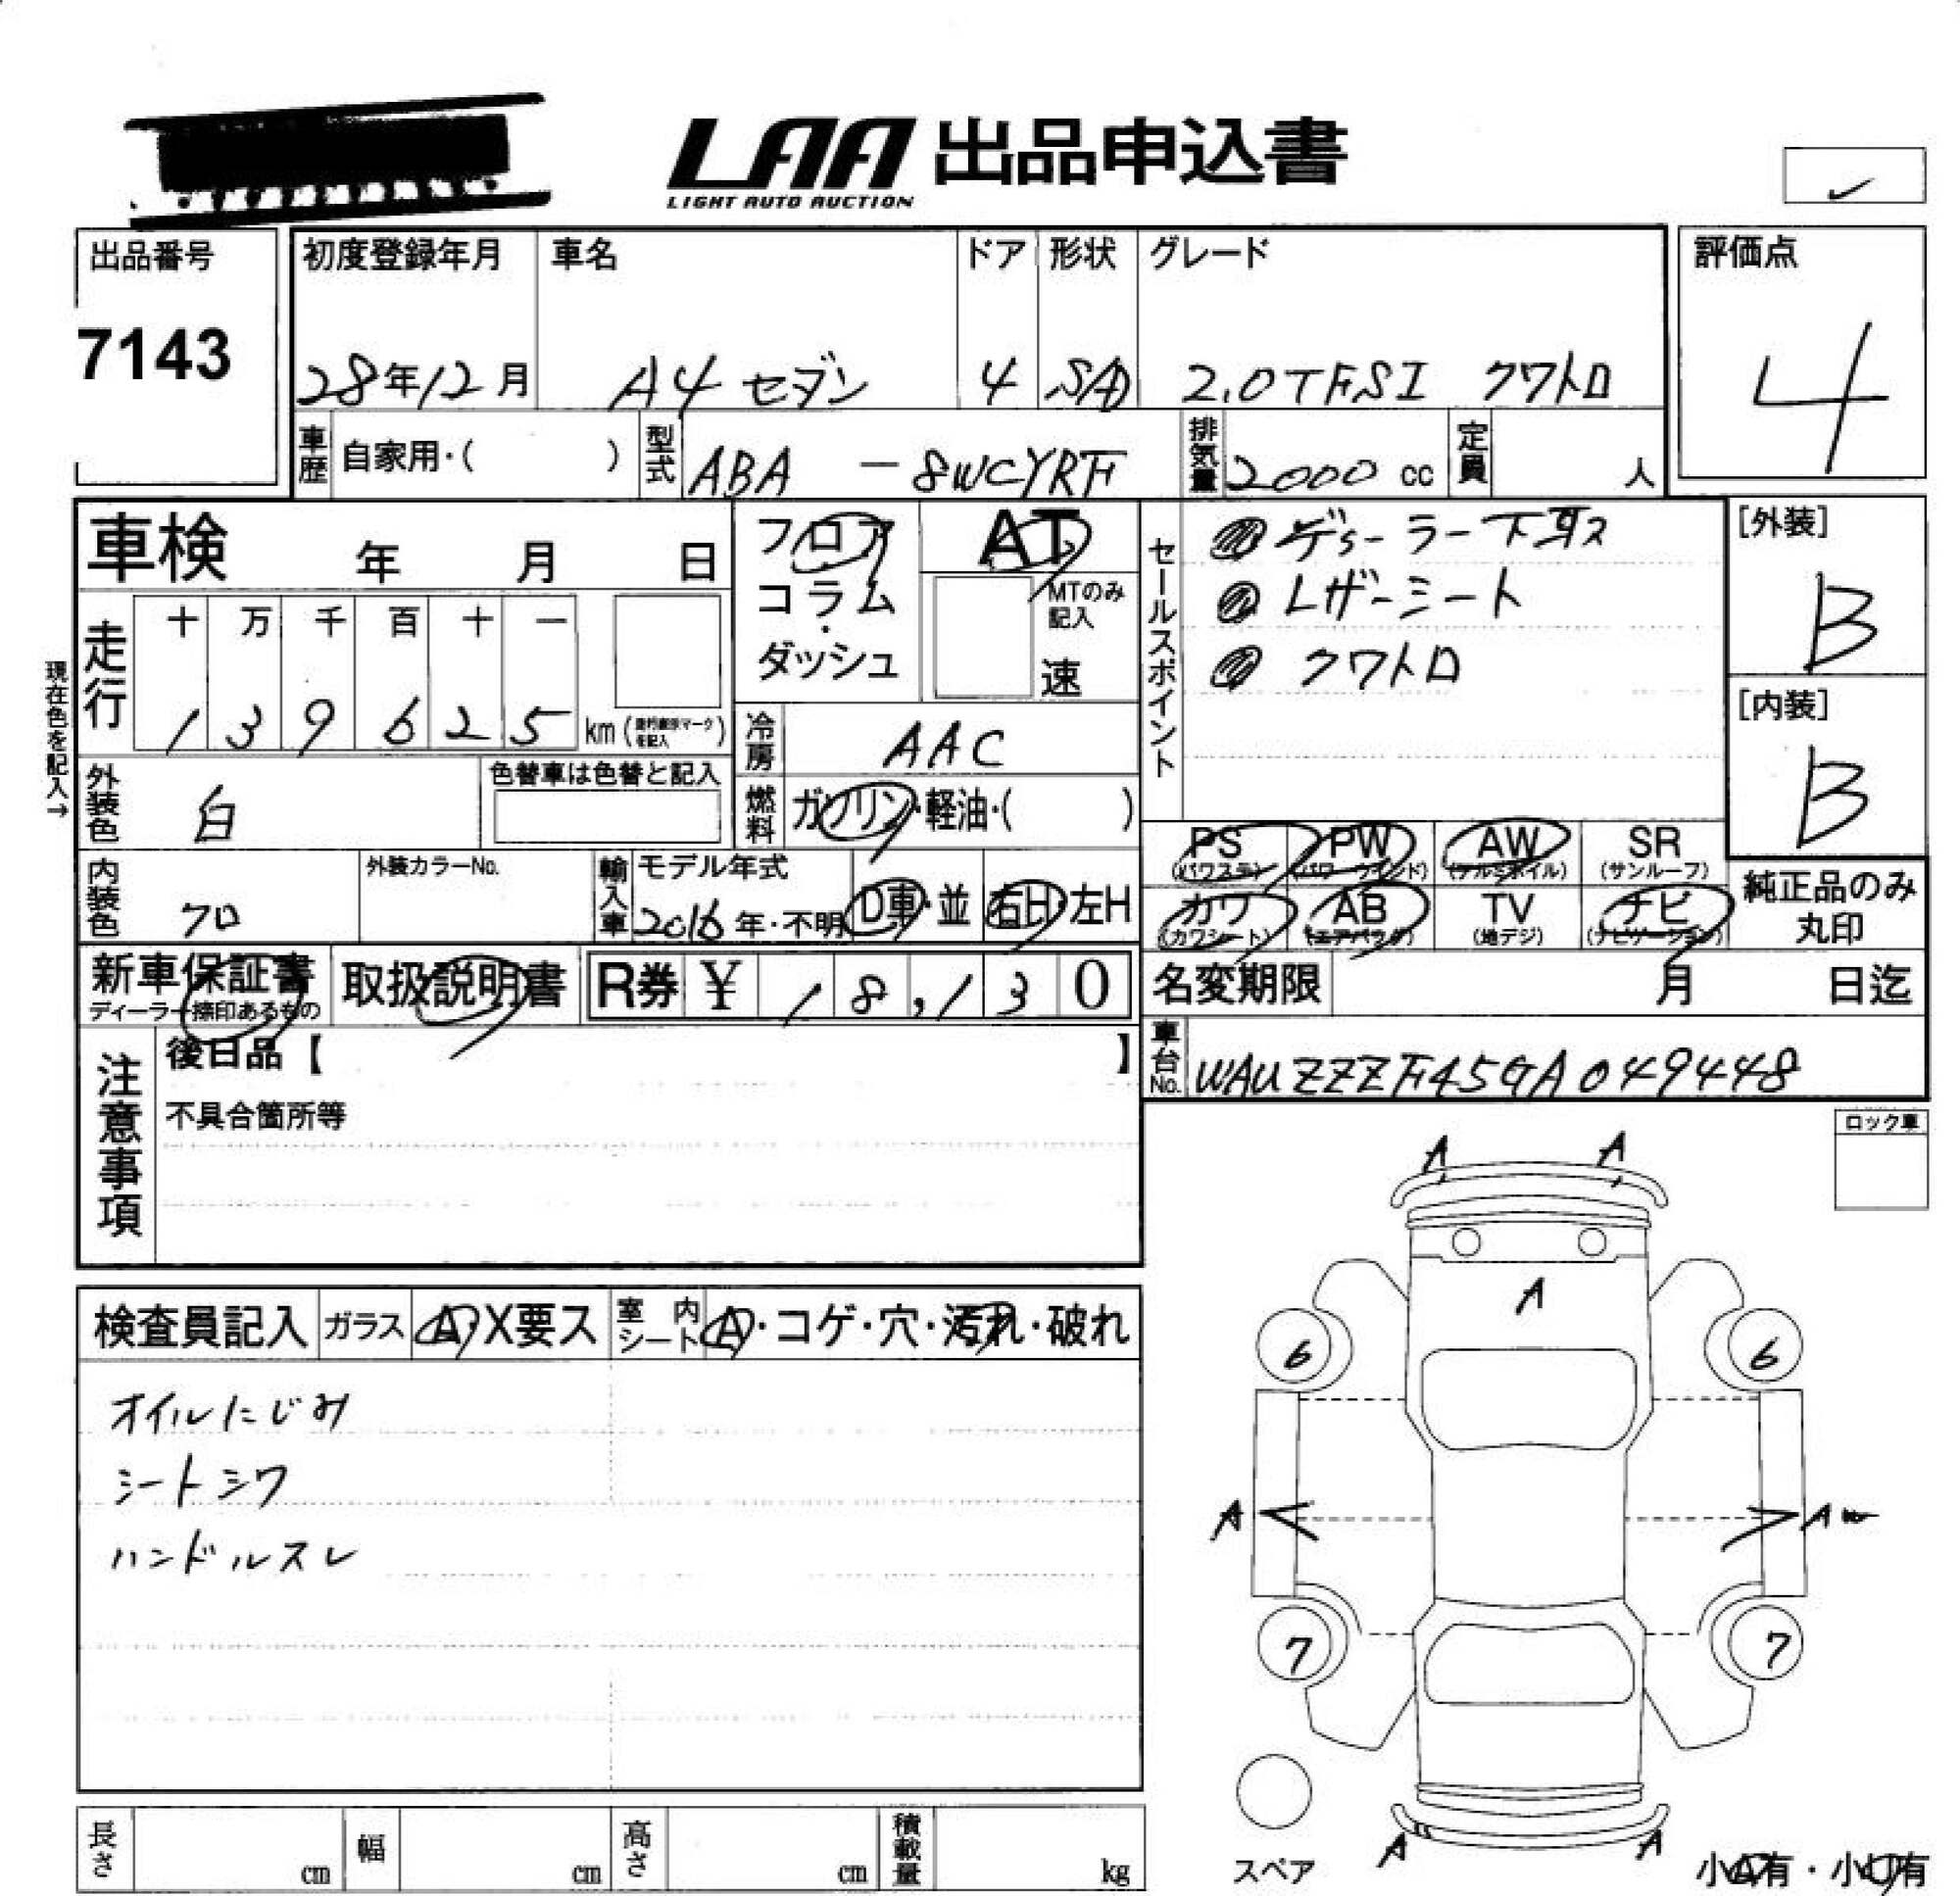 LAA 出品申込書
LIGHT AUTO AUCTION
出品番号
7143
初度登録年月 車名 ドア 形状 グレード
28年12月 A4 セダン 4 SD 2.0TFSI クワトロ
評価点
4
車歴 自家用・( ) 型式 ABA - 8WCYRF 排気量 2000 cc 定員 人
車検 年 月 日
フロア
コラム
・
ダッシュ
AT
MTのみ
記入
速
セールスポイント
レザーシート
クワトロ
[外装]
B
[内装]
B
現在色を記入→
走行 十 万 千 百 十 一
1 3 9 6 2 5 km
冷房 AAC
燃料 ガソリン・軽油・( )
外装色 白
色替車は色替と記入
内装色 クロ
外装カラーNo.
輸入車 モデル年式
2016年・不明 D車・並 右H・左H
PS (パワステ) PW (パワーウインド) AW (アルミホイル) SR (サンルーフ)
カワ (カワシート) AB (エアバック) TV (地デジ) ナビ (ナビゲーション)
純正品のみ
丸印
新車保証書
ディーラー捺印あるもの
取扱説明書 R券 ¥ 18,130
名変期限 月 日迄
車台No. WAUZZZF45GA049448
注意事項
後日品【 】
不具合箇所等
ロック車
検査員記入 ガラス A・X要ス 室内シート A・コゲ・穴・汚れ・破れ
オイルにじみ
シートシワ
ハンドルスレ
A A
A
6 6
A A
7 7
A A
スペア
小A有・小U有
長さ cm 幅 cm 高さ cm 積載量 kg